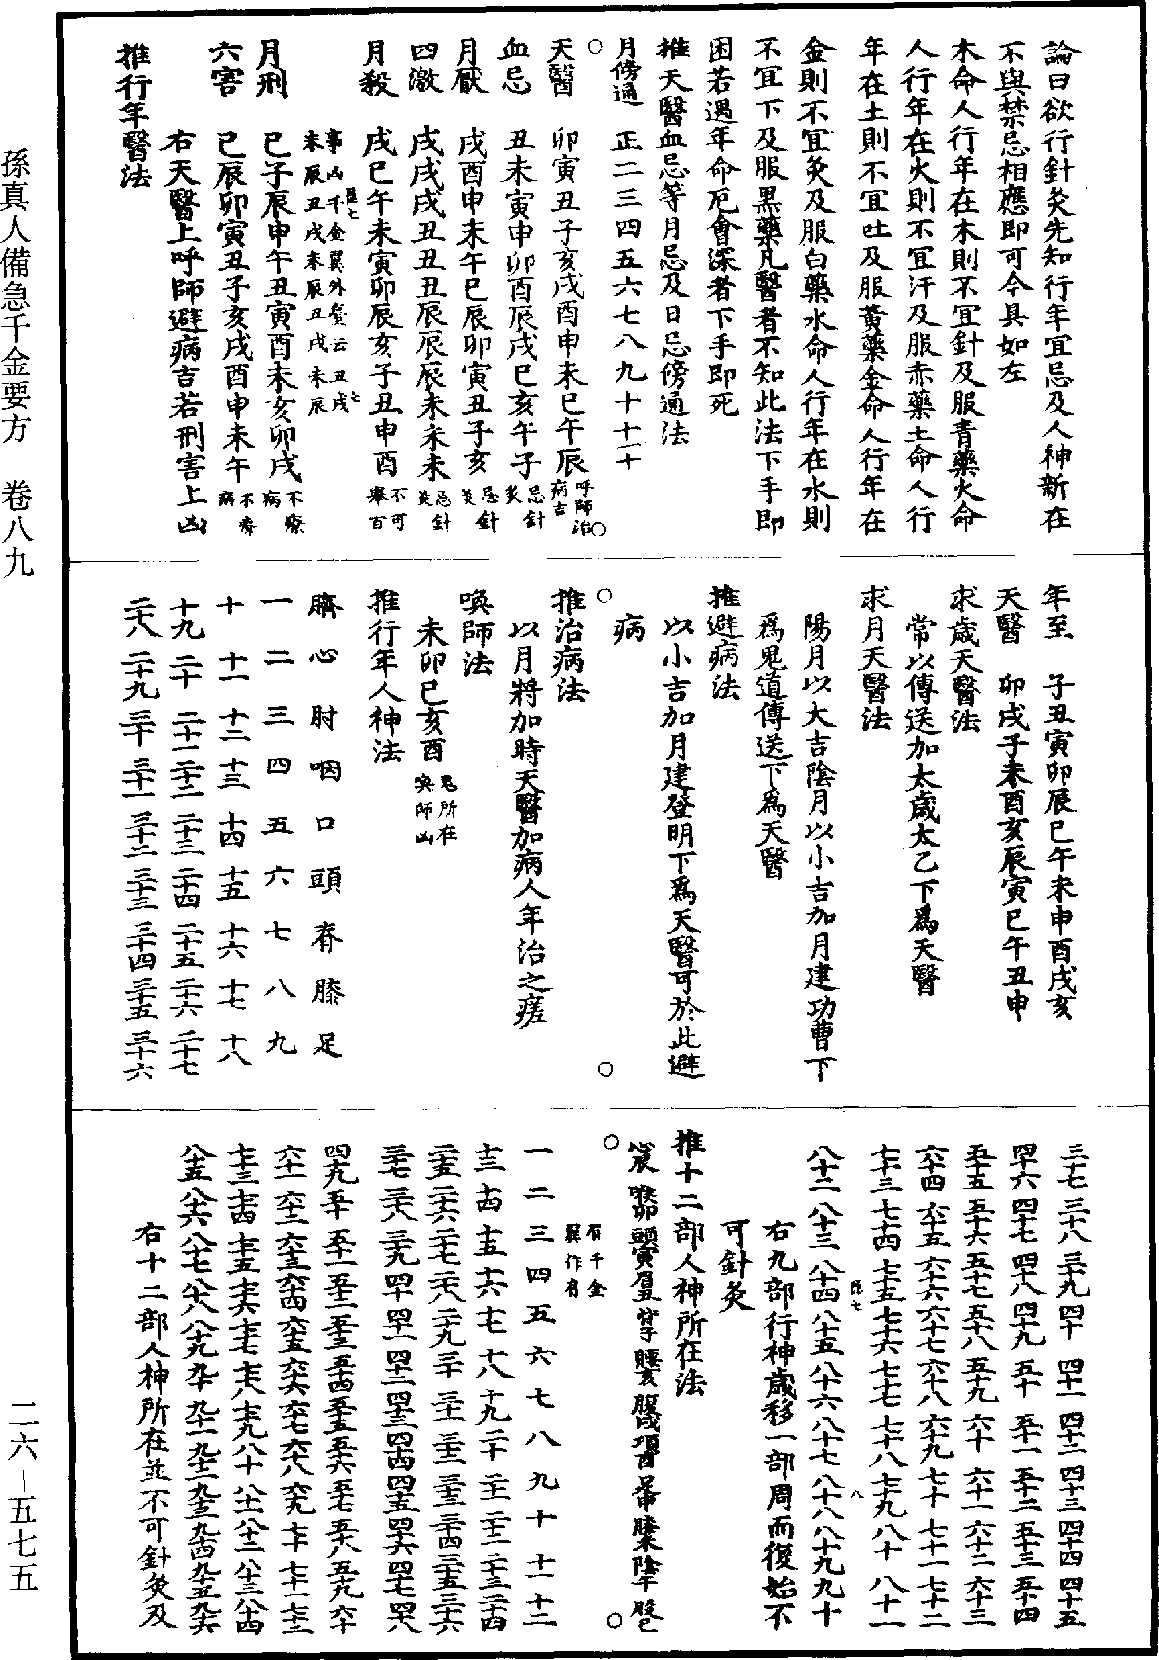 論曰欲行針灸先知行年宜忌及人神新在
不與禁忌相應即可今具如左
木命人行年在木則不宜針及服青藥火命
人行年在火則不宜汗及服赤藥土命人行
年在土則不宜吐及服黃藥金命人行年在
金則不宜灸及服白藥水命人行年在水則
不宜下及服黑藥凡醫者不知此法下手即
困若遇年命厄會深者下手即死
推天醫血忌等月忌及日忌傍通法
月傍通 正二三四五六七八九十十一十二
天醫 卯寅丑子亥戌酉申未巳午辰 呼師治病吉
血忌 丑未寅申卯酉辰戌巳亥午子 忌針灸
月厭 戌酉申未午巳辰卯寅丑子亥 忌針灸
四激 戌戌戌丑丑丑辰辰辰未未未 忌針灸
月殺 戌巳午未寅卯辰亥子丑申酉 不可舉百事凶千金翼外臺云丑戌未辰丑戌未辰丑戌未辰
月刑 巳子辰申午丑寅酉未亥卯戌 不療病
六害 巳辰卯寅丑子亥戌酉申未午 不療病
右天醫上呼師避病吉若刑害上凶
推行年醫法
年至 子丑寅卯辰巳午未申酉戌亥
天醫 卯戌子未酉亥辰寅巳午丑申
求歲天醫法
常以傳送加太歲太乙下為天醫
求月天醫法
陽月以大吉陰月以小吉加月建功曹下
為鬼道傳送下為天醫
推避病法
以小吉加月建登明下為天醫可於此避
病
推治病法
以月將加時天醫加病人年治之瘥
喚師法
未卯巳亥酉 鬼所在喚師凶
推行年人神法
臍 心 肘 咽 口 頭 脊 膝 足
一 二 三 四 五 六 七 八 九
十 十一 十二 十三 十四 十五 十六 十七 十八
十九 二十 二十一 二十二 二十三 二十四 二十五 二十六 二十七
二十八 二十九 三十 三十一 三十二 三十三 三十四 三十五 三十六
三十七 三十八 三十九 四十 四十一 四十二 四十三 四十四 四十五
四十六 四十七 四十八 四十九 五十 五十一 五十二 五十三 五十四
五十五 五十六 五十七 五十八 五十九 六十 六十一 六十二 六十三
六十四 六十五 六十六 六十七 六十八 六十九 七十 七十一 七十二
七十三 七十四 七十五 七十六 七十七 七十八 七十九 八十 八十一
八十二 八十三 八十四 八十五 八十六 八十七 八十八 八十九 九十
右九部行神歲移一部周而復始不
可針灸
推十二部人神所在法
心辰 喉卯 頭寅 眉丑 背子 腰亥 腹戌 項酉 足申 膝未 陰午 股巳
右千金翼作有
一 二 三 四 五 六 七 八 九 十 十一 十二
十三 十四 十五 十六 十七 十八 十九 二十 二十一 二十二 二十三 二十四
二十五 二十六 二十七 二十八 二十九 三十 三十一 三十二 三十三 三十四 三十五 三十六
三十七 三十八 三十九 四十 四十一 四十二 四十三 四十四 四十五 四十六 四十七 四十八
四十九 五十 五十一 五十二 五十三 五十四 五十五 五十六 五十七 五十八 五十九 六十
六十一 六十二 六十三 六十四 六十五 六十六 六十七 六十八 六十九 七十 七十一 七十二
七十三 七十四 七十五 七十六 七十七 七十八 七十九 八十 八十一 八十二 八十三 八十四
八十五 八十六 八十七 八十八 八十九 九十 九十一 九十二 九十三 九十四 九十五 九十六
右十二部人神所在並不可針灸及
孫真人備急千金要方 卷八九
二六—五七五